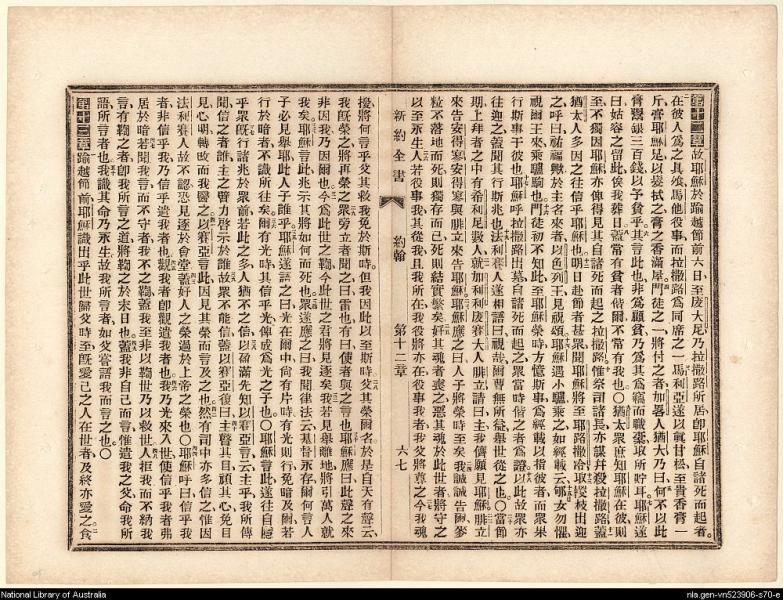 第十二章故耶穌於踰越節前六日至庋大尼乃拉撒路所居卽耶穌自諸死而起者
在彼人爲之具饗馬他役事而拉撒路爲同席之一馬利亞遂以眞甘松至貴香膏一
斤膏耶穌足以髮拭之膏之香滿屋門徒之一將付之者加畧人猶大乃曰何不以此
膏鬻銀三百錢以予貧乎其言此也非爲顧貧乃爲其爲竊而職橐取所貯耳耶穌遂
曰姑容之留此俟我葬日蓋常有貧者偕爾不常有我也○猶太衆庶知耶穌在彼則
至不獨因耶穌亦俾得見其自諸死而起之拉撒路惟祭司諸長亦謀幷殺拉撒路蓋
猶太人多因之往信乎耶穌也明日赴節者甚衆聞耶穌將至耶路撒冷取椶枝出迎
之呼曰祜福繫於主名來者以色列王見祝頌耶穌遇小驢乘之如經載云郇女勿懼
視爾王來乘驢駒也門徒初不知此至耶穌榮時方憶斯事爲經載以指彼者而衆果
行斯事于彼也耶穌呼拉撒路出墓自諸死而起之衆當時偕之者爲證以此故衆亦
往迎之蓋聞其行斯兆也法利賽人遂相語曰視哉爾曹無所益舉世從之也○當節
期上拜者之中有希利尼數人就加利利庋賽大人腓立請曰主我儕願見耶穌腓立
來告安得寡安得寡與腓立來告耶穌耶穌應之曰人子將榮時至矣我誠誠告爾麥
粒不落地而死則獨存而已死則結實繁矣好其魂者喪之惡其魂於此世者將守之
以至永生人若役事我其從我且我所在我役將亦在役事我者我父將尊之今我魂
新約全書 約翰 第十二章 六七
擾將何言乎父其救我免於斯時但我因此以至斯時父其榮爾名於是自天有聲云
我旣榮之將再榮之衆旁立者聞之曰雷也有曰使者與之言也耶穌應曰此聲之來
非因我乃因爾也今爲此世之鞫今此世之君將見逐矣我若見舉離地將引萬人就
我矣耶穌言此兆示其將如何而死也衆遂應之曰我聞律法云基督永存爾何言人
子必見舉耶此人子誰乎耶穌遂語之曰光在爾中尙有片時有光則行免暗及爾若
行於暗者不識所往矣爾有光時其信乎光俾成爲光之子也○耶穌言此遂往自隱
乎衆旣行諸兆於衆前若此之多人猶不之信以俾滿先知以賽亞言云主乎我所傳
聞信之者誰主之臂力啓示於誰故衆不能信蓋以賽亞復曰主瞽其目頑其心免目
見心明轉攺而我醫之以賽亞言此因見其榮而言及之也然有司中亦多信之惟因
法利賽人故不認恐見逐於會堂蓋好人之榮過於上帝之榮也○耶穌呼曰信乎我
者非信乎我乃信乎遣我者也觀我者卽觀遣我者也我乃光來入世使信乎我者弗
居於暗若聞我言而不守者我不之鞫蓋我至非以鞫世乃以救世人拒我而不納我
言有鞫之者卽我所言之道將鞫之於末日也蓋我非自己而言惟遣我之父命我所
語所言者也我識其命乃永生故我所言者如父嘗語我而言之也○
第十三章踰越節前耶穌識出乎此世歸父時至旣愛己之人在世者及終亦愛之食
National Library of Australia
nla.gen-vn523906-s70-e